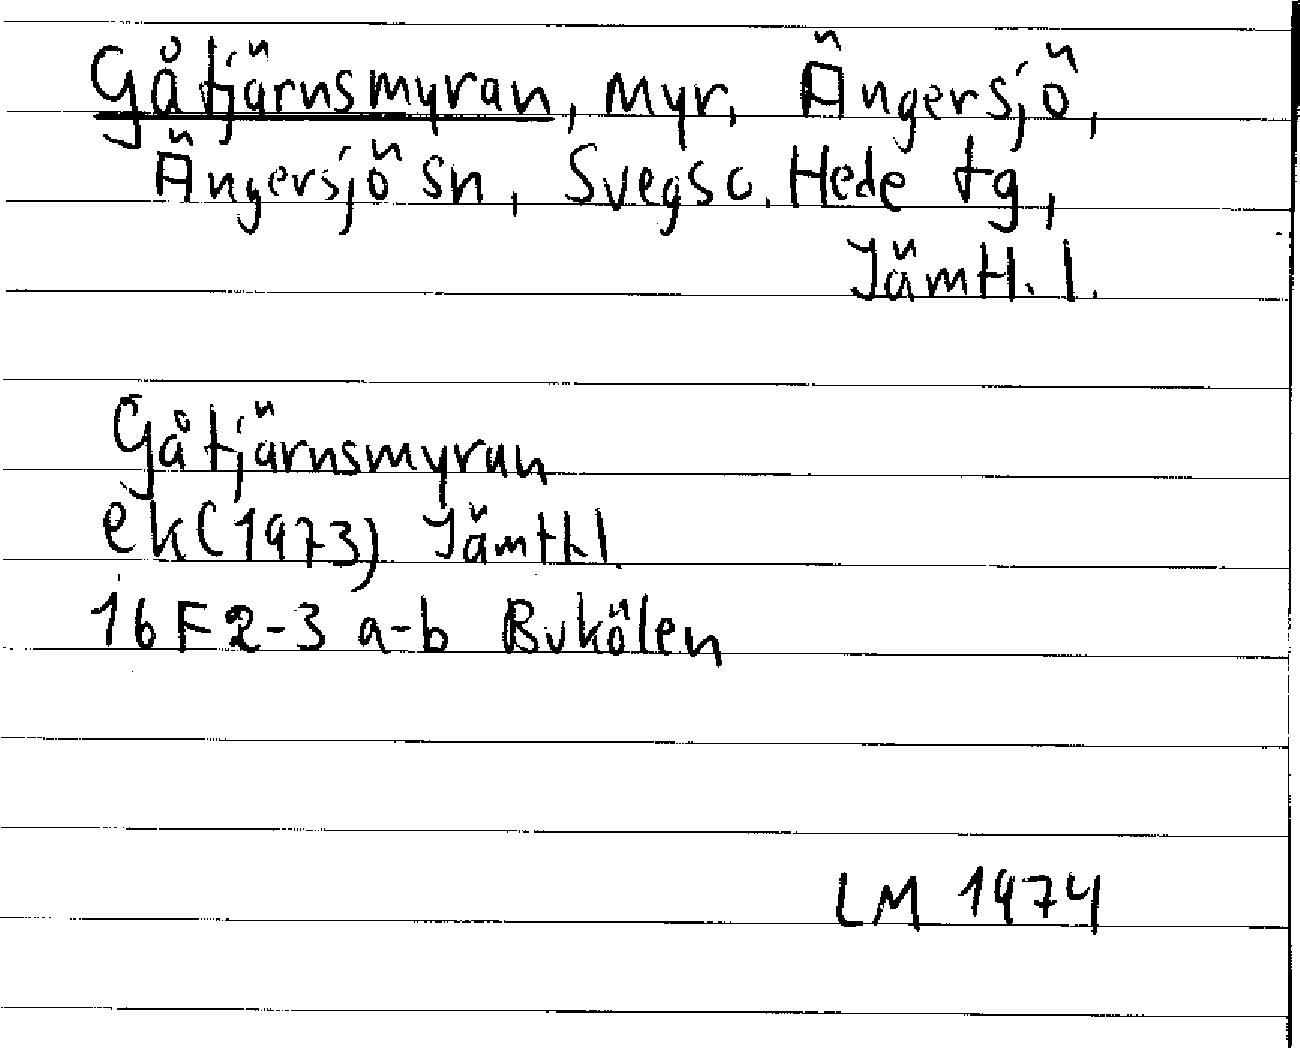 Gåtjärnsmyran, myr, Ängersjö,
Ängersjö sn, Svegs o. Hede tg,
Jämtl. l.
Gåtjärnsmyran
ek (1973) Jämtl. l.
16 F 2-3 a-b Bukölen
LM 1974